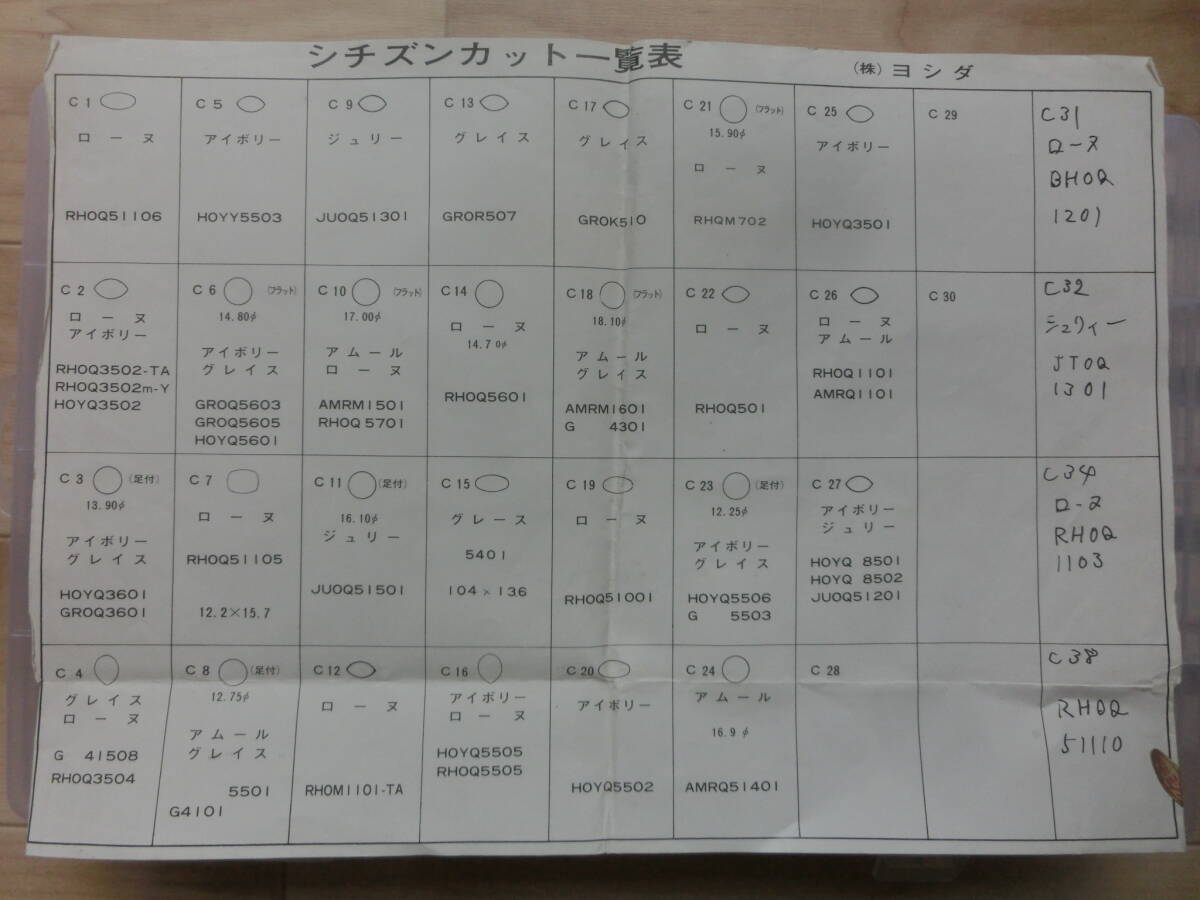 シチズンカット一覧表
(株) ヨシダ
C 1
ローヌ
RHOQ51106
C 5
アイボリー
HOYY5503
C 9
ジュリー
JUOQ51301
C 13
グレイス
GROR507
C 17
グレイス
GROK510
C 21 (フラット)
15.90φ
ローヌ
RHQM702
C 25
アイボリー
HOYQ3501
C 29
C31
ローヌ
BHOQ
1201
C 2
ローヌ
アイボリー
RHOQ3502-TA
RHOQ3502m-Y
HOYQ3502
C 6 (フラット)
14.80φ
アイボリー
グレイス
GROQ5603
GROQ5605
HOYQ5601
C 10 (フラット)
17.00φ
アムール
ローヌ
AMRM1501
RHOQ5701
C 14
ローヌ
14.70φ
RHOQ5601
C 18 (フラット)
18.10φ
アムール
グレイス
AMRM1601
G 4301
C 22
ローヌ
RHOQ501
C 26
ローヌ
アムール
RHOQ1101
AMRQ1101
C 30
C32
ジュリィー
JTOQ
1301
C 3 (足付)
13.90φ
アイボリー
グレイス
HOYQ3601
GROQ3601
C 7
ローヌ
RHOQ51105
12.2×15.7
C 11 (足付)
16.10φ
ジュリー
JUOQ51501
C 15
グレース
5401
104×136
C 19
ローヌ
RHOQ51001
C 23 (足付)
12.25φ
アイボリー
グレイス
HOYQ5506
G 5503
C 27
アイボリー
ジュリー
HOYQ 8501
HOYQ 8502
JUOQ51201
C34
ローヌ
RHOQ
1103
C 4
グレイス
ローヌ
G 41508
RHOQ3504
C 8 (足付)
12.75φ
アムール
グレイス
5501
G4101
C 12
ローヌ
RHOM1101-TA
C 16
アイボリー
ローヌ
HOYQ5505
RHOQ5505
C 20
アイボリー
HOYQ5502
C 24
アムール
16.9φ
AMRQ51401
C 28
C38
RHOQ
51110